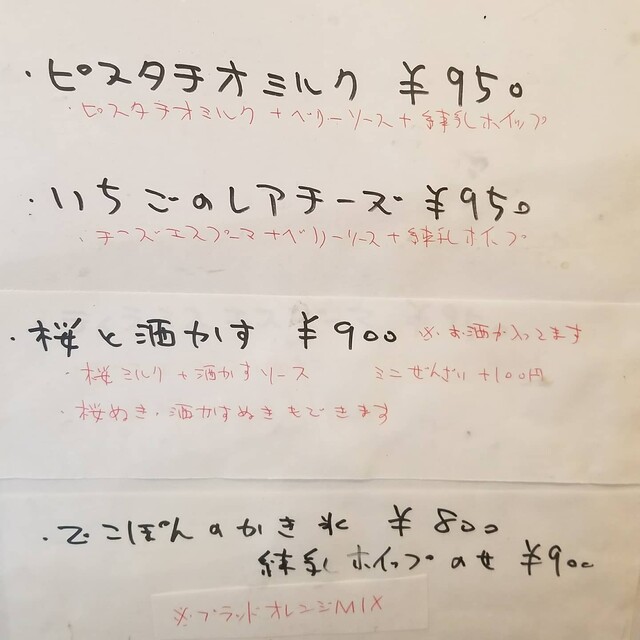 ・ピスタチオミルク ¥950
・ピスタチオミルク+ベリーソース+練乳ホイップ
・いちごのレアチーズ ¥950
・チーズエスプーマ+ベリーソース+練乳ホイップ
・桜と酒かす ¥900 ※お酒が入ってます
・桜ミルク+酒かすソース ミニぜんざい+100円
・桜ぬき・酒かすぬきもできます
・でこぽんのかき氷 ¥800
練乳ホイップのせ ¥900
※ブラッドオレンジMIX